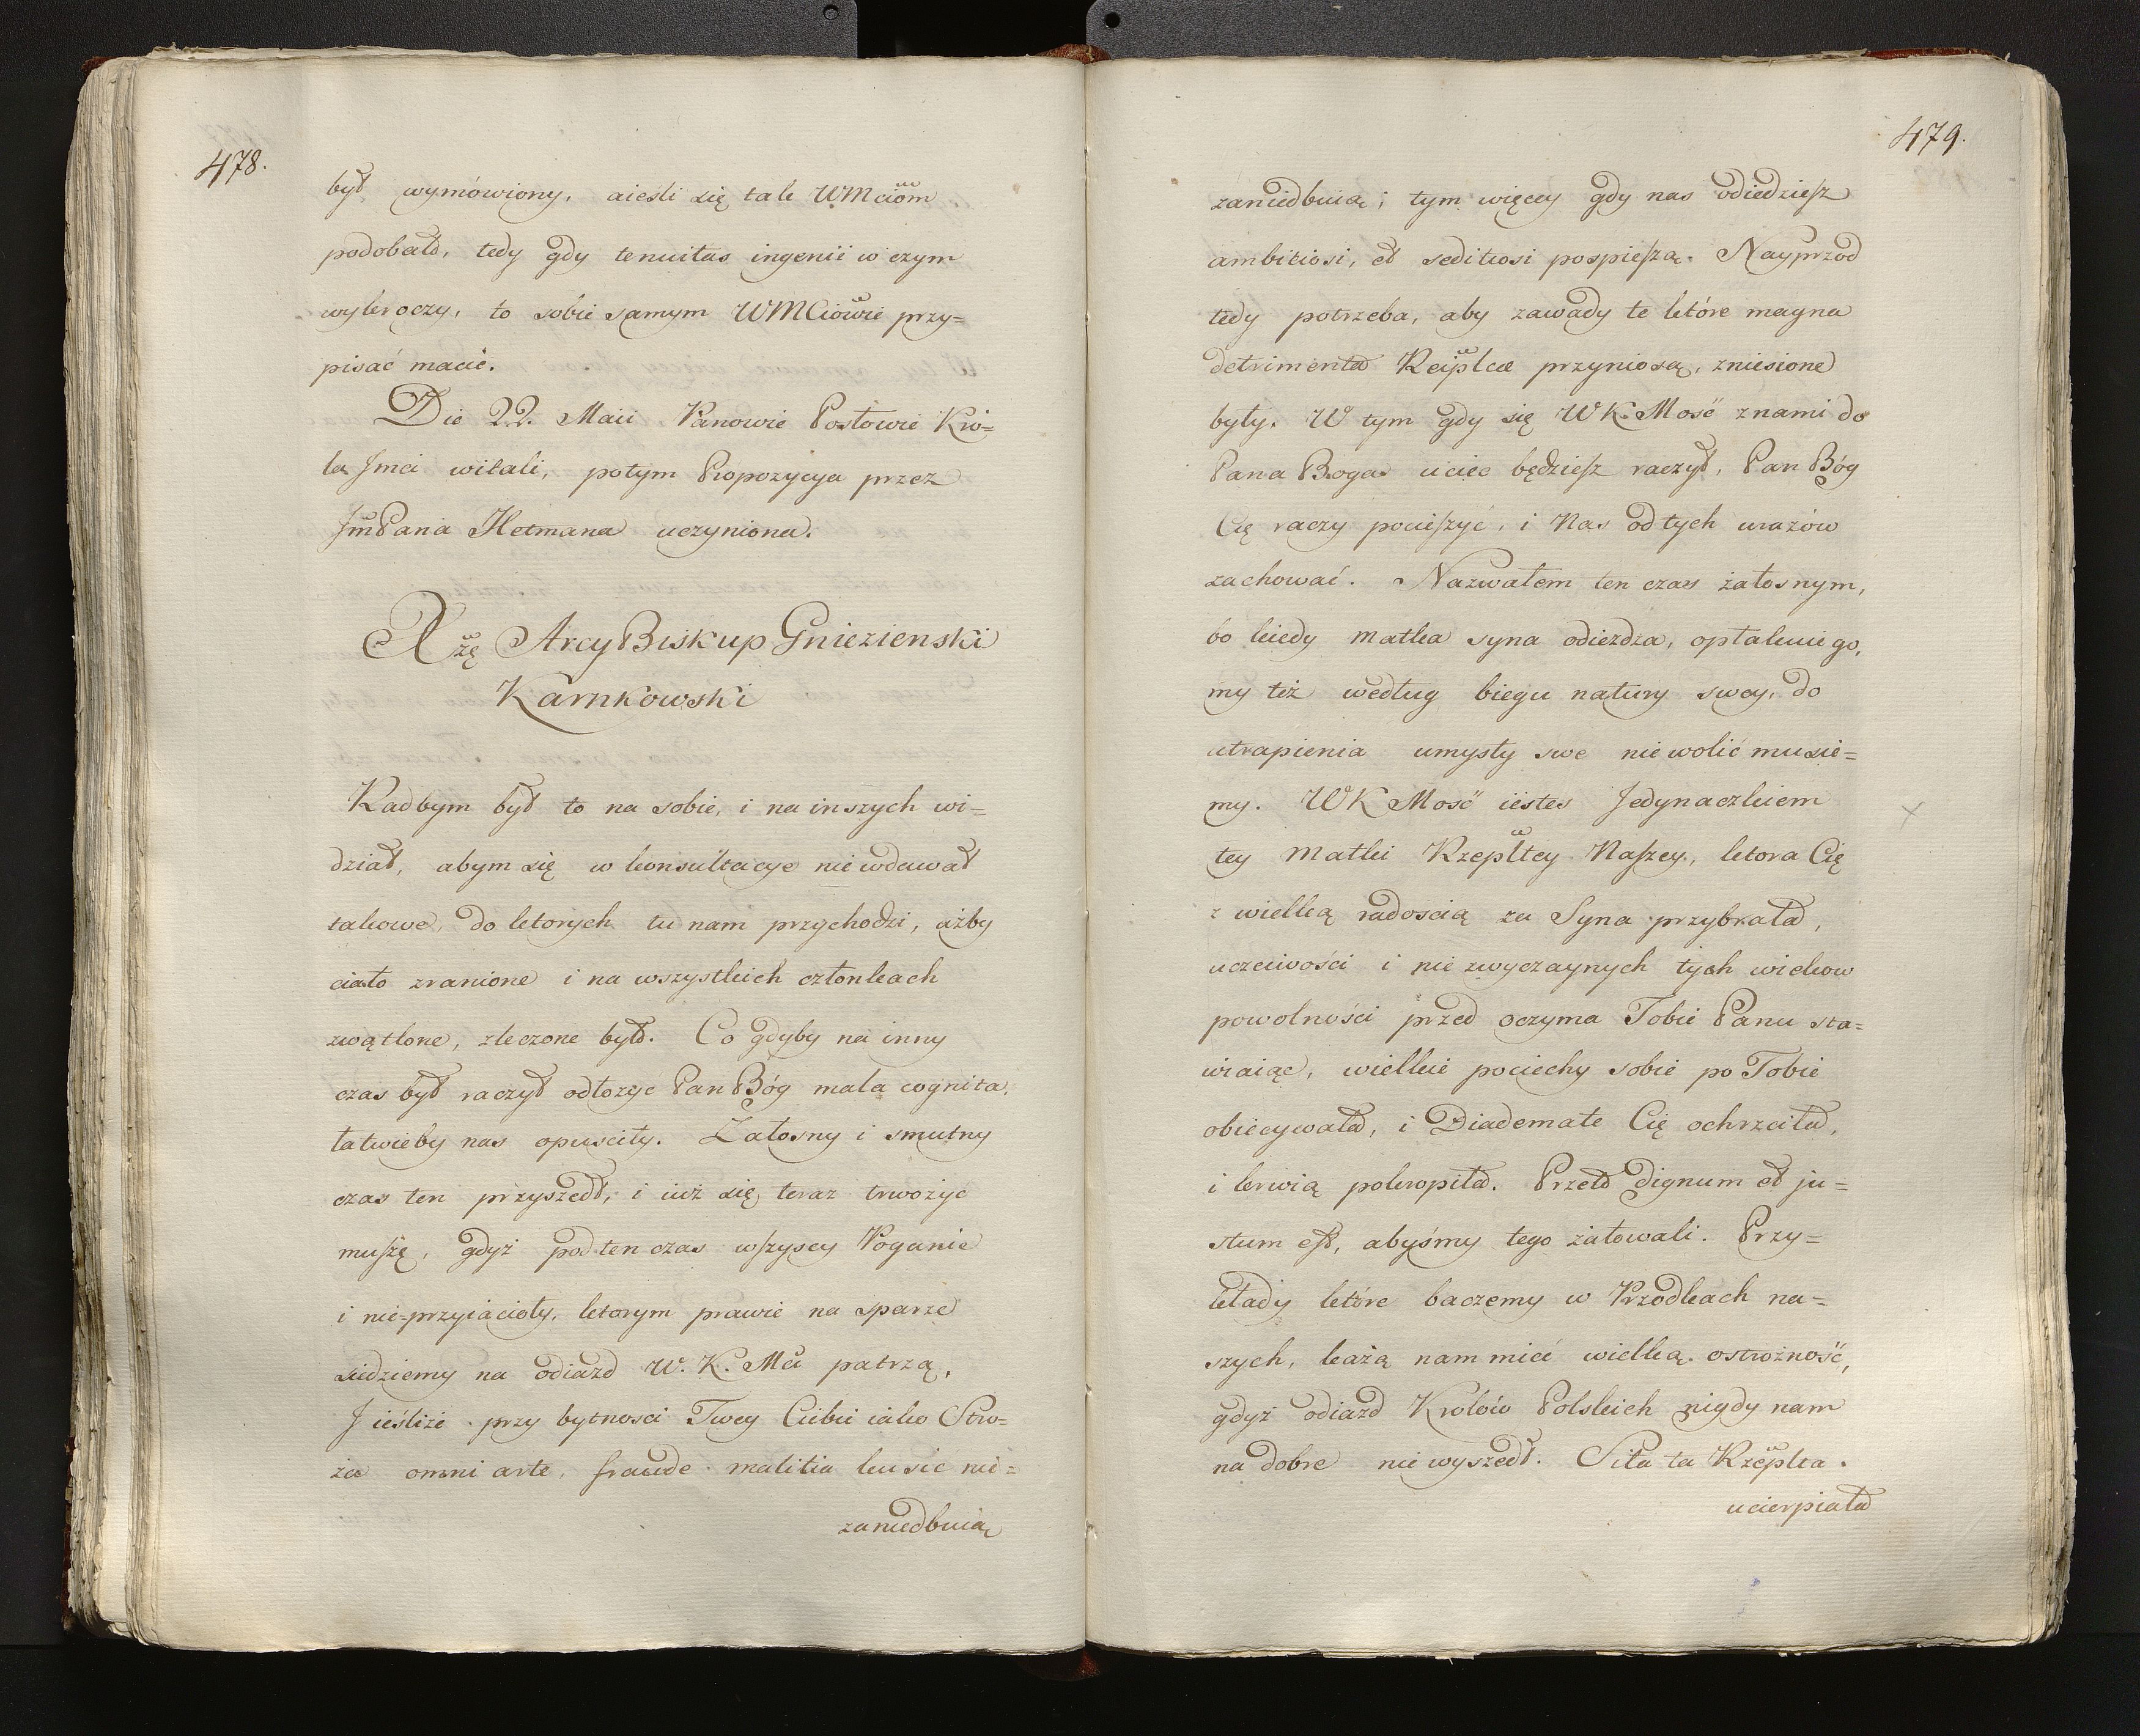 478.
był wymówiony, aiesli się tak WMciom
podobało, tedy gdy tenuitas ingenii w czym
wykroczy, to sobie samym WMCiowie przy=
pisać macie.
Die 22. Maii Panowie Posłowie Kró=
la Jmci witali, potym Propozycya przez
JmPana Hetmana uczyniona.
Xżę ArcyBiskup Gniezienski
Karnkowski
Radbym był to na sobie, i na inszych wi=
dział, abym się w konsultacye nie wdawał
takowe, do ktorych tu nam przychodzi, ażby
ciało zranione i na wszystkich członkach
zwątlone, zleczone było. Co gdyby na inny
czas był raczył odłożyć Pan Bóg mala cognita,
łatwieby nas opuscity. Załosny i smutny
czas ten przyszedł, i iuż się teraz trwożyć
muszę, gdyż pod ten czas wszyscy Poganie
i nie=przyiacioły, ktorym prawie na sparze
siedziemy na odiazd W. K. Mci patrzą.
J ieśliże przy bytnosci Twey Ciebie iako Stró=
ża omni arte, fraude malitia kusić nie=
zaniedbuią
479.
zaniedbuią, tym więcey gdy nas odiedziesz
ambitiosi, et seditiosi pospieszą. Nayprzod
tedy potrzeba, aby zawady te które magna
detrimenta Reiplcæ przyniosą, zniesione
były. W tym gdy się WK Mość z nami do
Pana Boga uciec będziesz raczył, Pan Bóg
Cię raczy pocieszyć, i Nas od tych urazów
zachować. Nazwałem ten czas żałosnym,
bo kiedy matka syna odiezdza, opłakuie go,
my też według biegu natury swey, do
utrapienia umysły swe niewolić musie=
my. WK Mość iestes Jedynaczkiem
tey Matki Rzepltey Naszey, ktora Cię
z wielką radoscią za Syna przybrała,
uczciwości i nie zwyczaynych tych wiekow
powolności przed oczyma Tobie Panu sta=
wiaiąc, wielkie pociechy sobie po Tobie
obiecywała, i Diademate Cię ochrzciła,
i krwią pokropiła. Przeto Dignum et ju=
stum est, abyśmy tego żałowali. Przy=
kłady które baczemy w Przodkach na=
szych, każą nam mieć wielką ostrożność,
gdyż odiazd Królów Polskich nigdy nam
na dobre nie wyszedł. Siła ta Rzeplta
ucierpiała